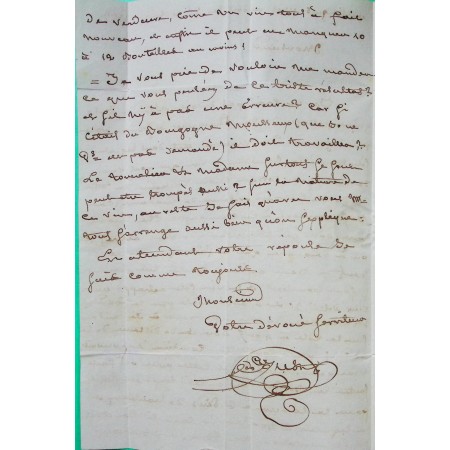 De verdeur, come un vin tout à fait
nouveau, et enfin il peut en manquer 10
à 12 Bouteilles au moins!
= Je vous prie de vouloir me mander
ce que vous pensez de ce triste résultat?
et s'il n'y à pas une erreur car si
c'était du Bourgogne Mousseux (que je ne
vs ai pas demandé) il doit travailler?
Le Sommelier de Madame surtout se sera
peut etre trompé aussi sur la nature de
ce vin, au reste je sais qu'avec vous Mr
tout s'arrange aussi bien qu'on s'explique.
En attendant votre réponse je
suis comme toujours
Monsieur
Votre dévoué serviteur